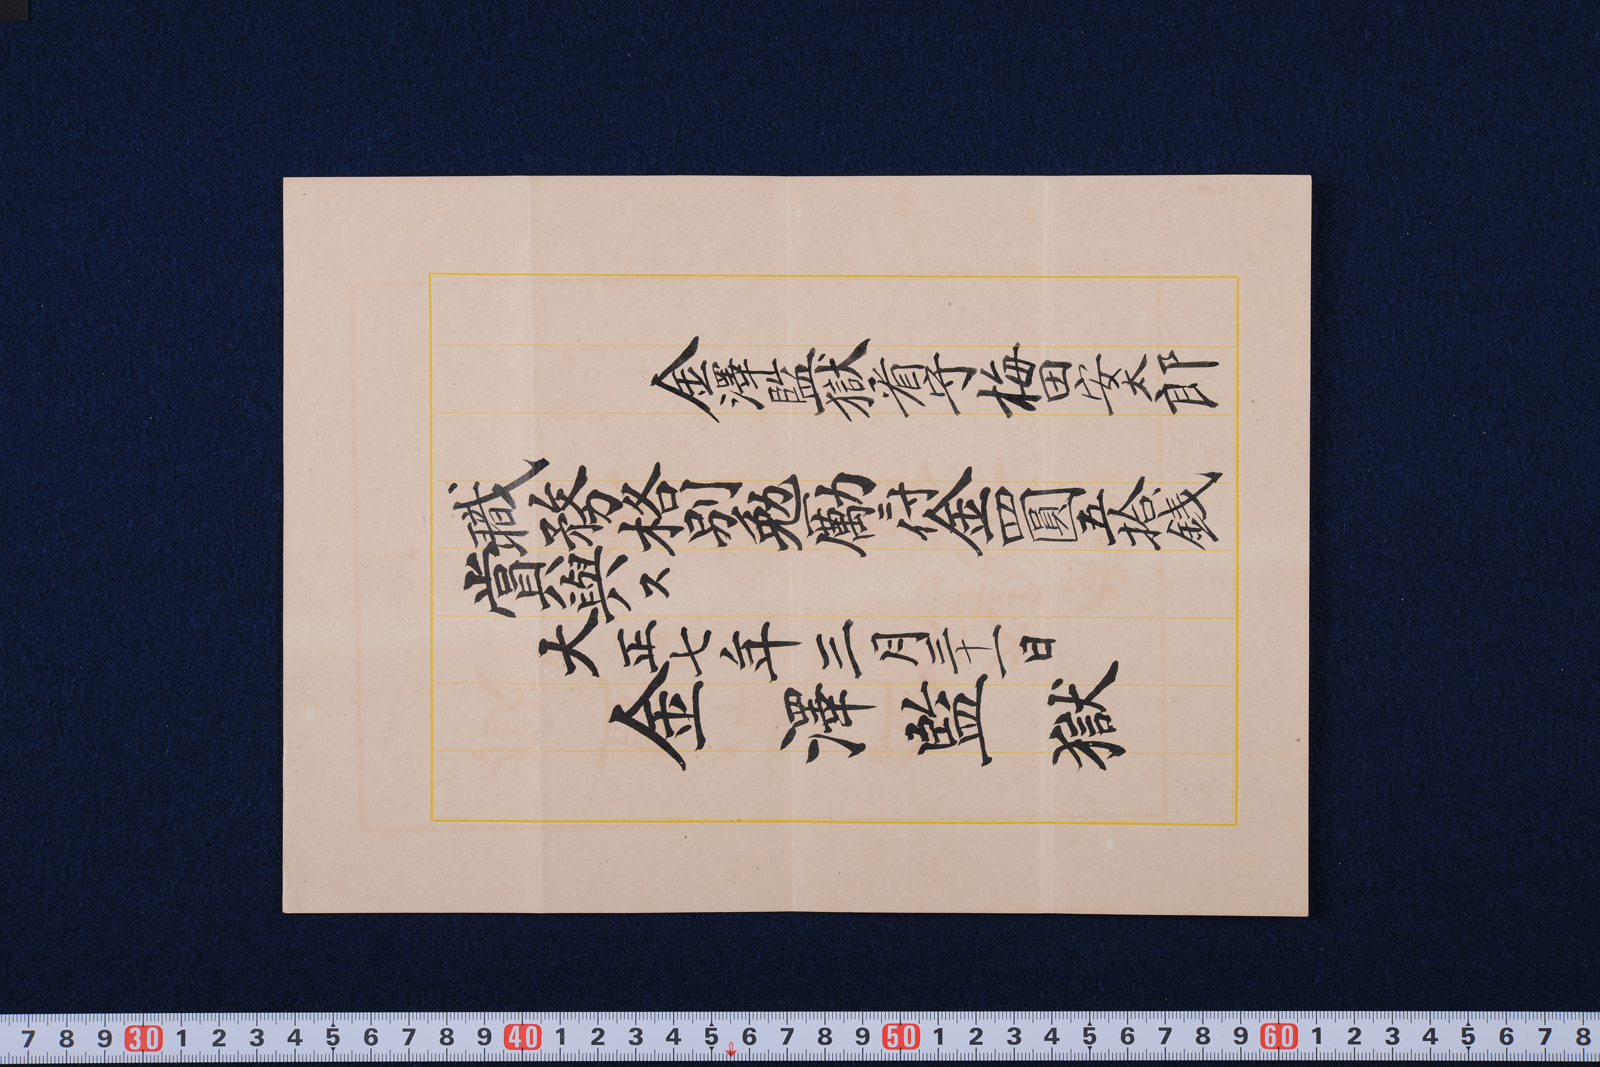 金澤監獄看守梅田安太郎
職務格別勉勵ニ付金四圓五拾錢
賞與ス
大正七年三月三十一日
金澤監獄
7 8 9 30 1 2 3 4 5 6 7 8 9 40 1 2 3 4 5 6 7 8 9 50 1 2 3 4 5 6 7 8 9 60 1 2 3 4 5 6 7 8